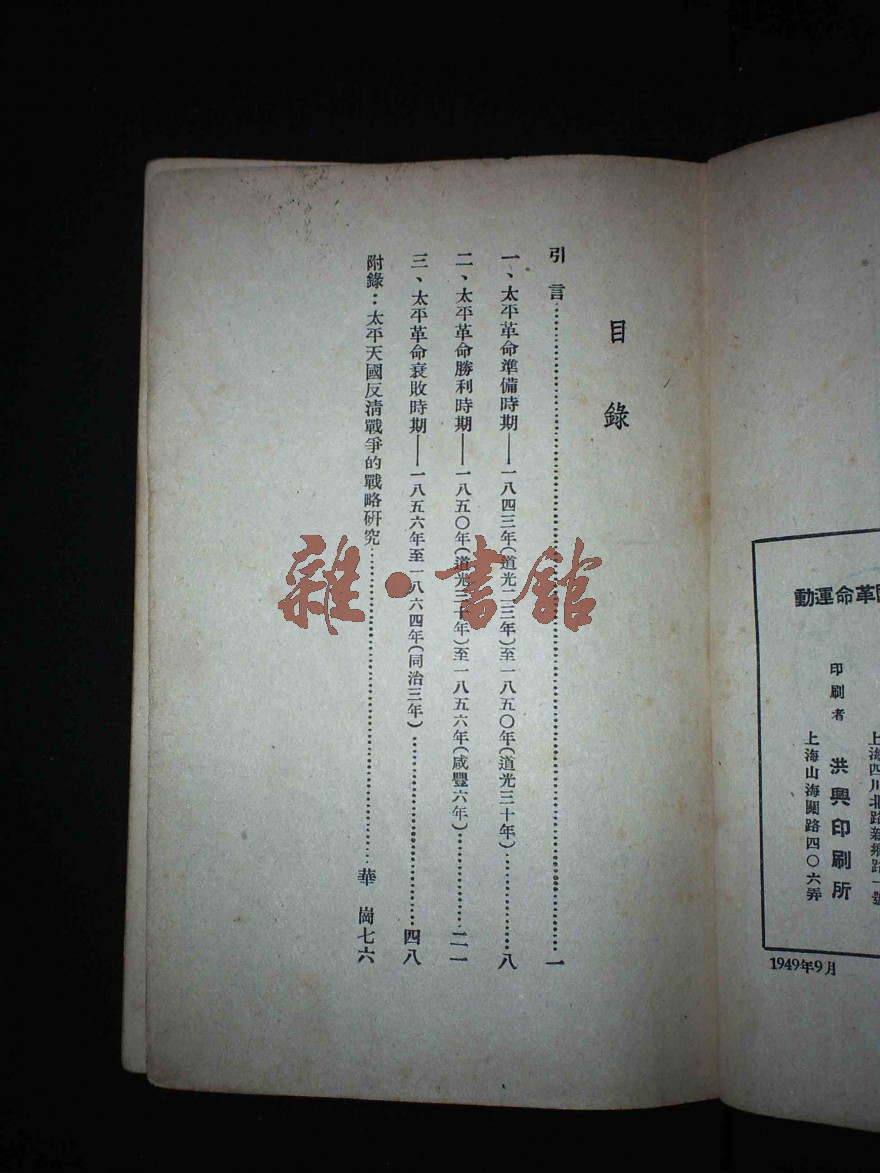 目錄
引言……一
一、太平革命準備時期——一八四三年(道光二三年)至一八五〇年(道光三十年)……八
二、太平革命勝利時期——一八五〇年(道光三十年)至一八五六年(咸豐六年)……二一
三、太平革命衰敗時期——一八五六年至一八六四年(同治三年)……四八
附錄：太平天國反清戰爭的戰略研究……華崗七六
雜·書館
革命運動
上海四川北路新鄉路一號
印刷者 洪興印刷所
上海山海關路四〇六弄
1949年9月